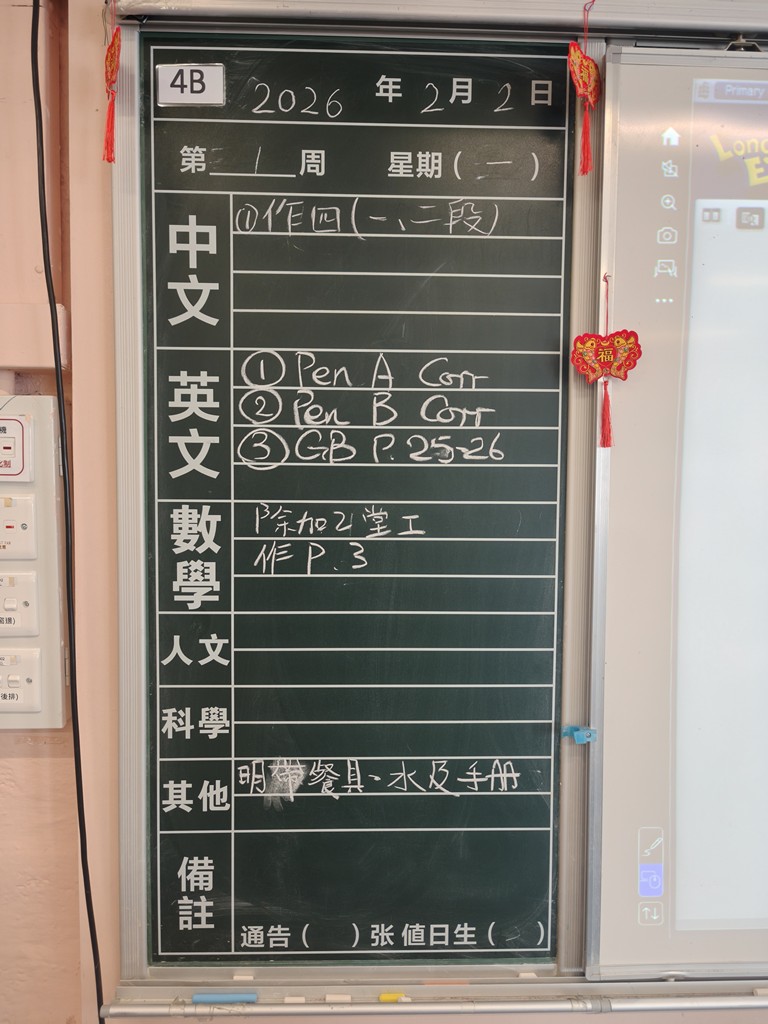 4B 2026 年 2 月 2 日
第 1 周 星期( 一 )
中文
①作四(一、二段)
英文
① Pen A Corr
② Pen B Corr
③ GB P. 25-26
數學
除加2堂工
作 P.3
人文
科學
其他
明帶餐具、水及手册
備註
通告( )张 值日生( )
福
Primary